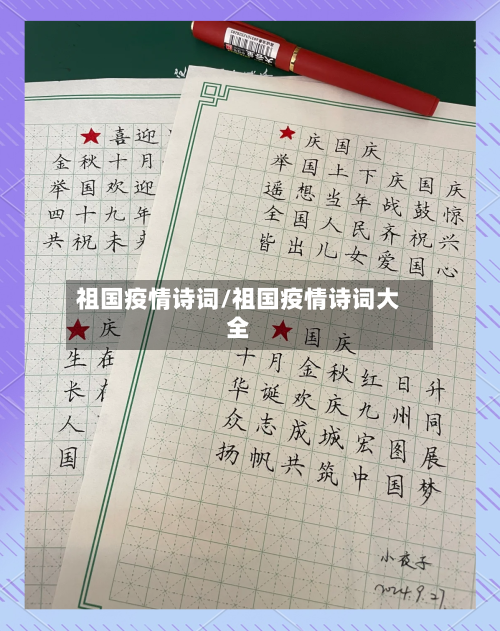 喜迎
金秋十月
举国欢迎
四十九年
共祝未
庆国庆
举国上下庆国庆
遥想当年战鼓惊
全国人民齐祝兴
皆出儿女爱国心
祖国疫情诗词/祖国疫情诗词大
全
庆
生在
长
人
国
国庆
十月金秋红日升
华诞欢庆九州同
众志成城宏图展
扬帆共筑中国梦
小夜子
2024.9.27.